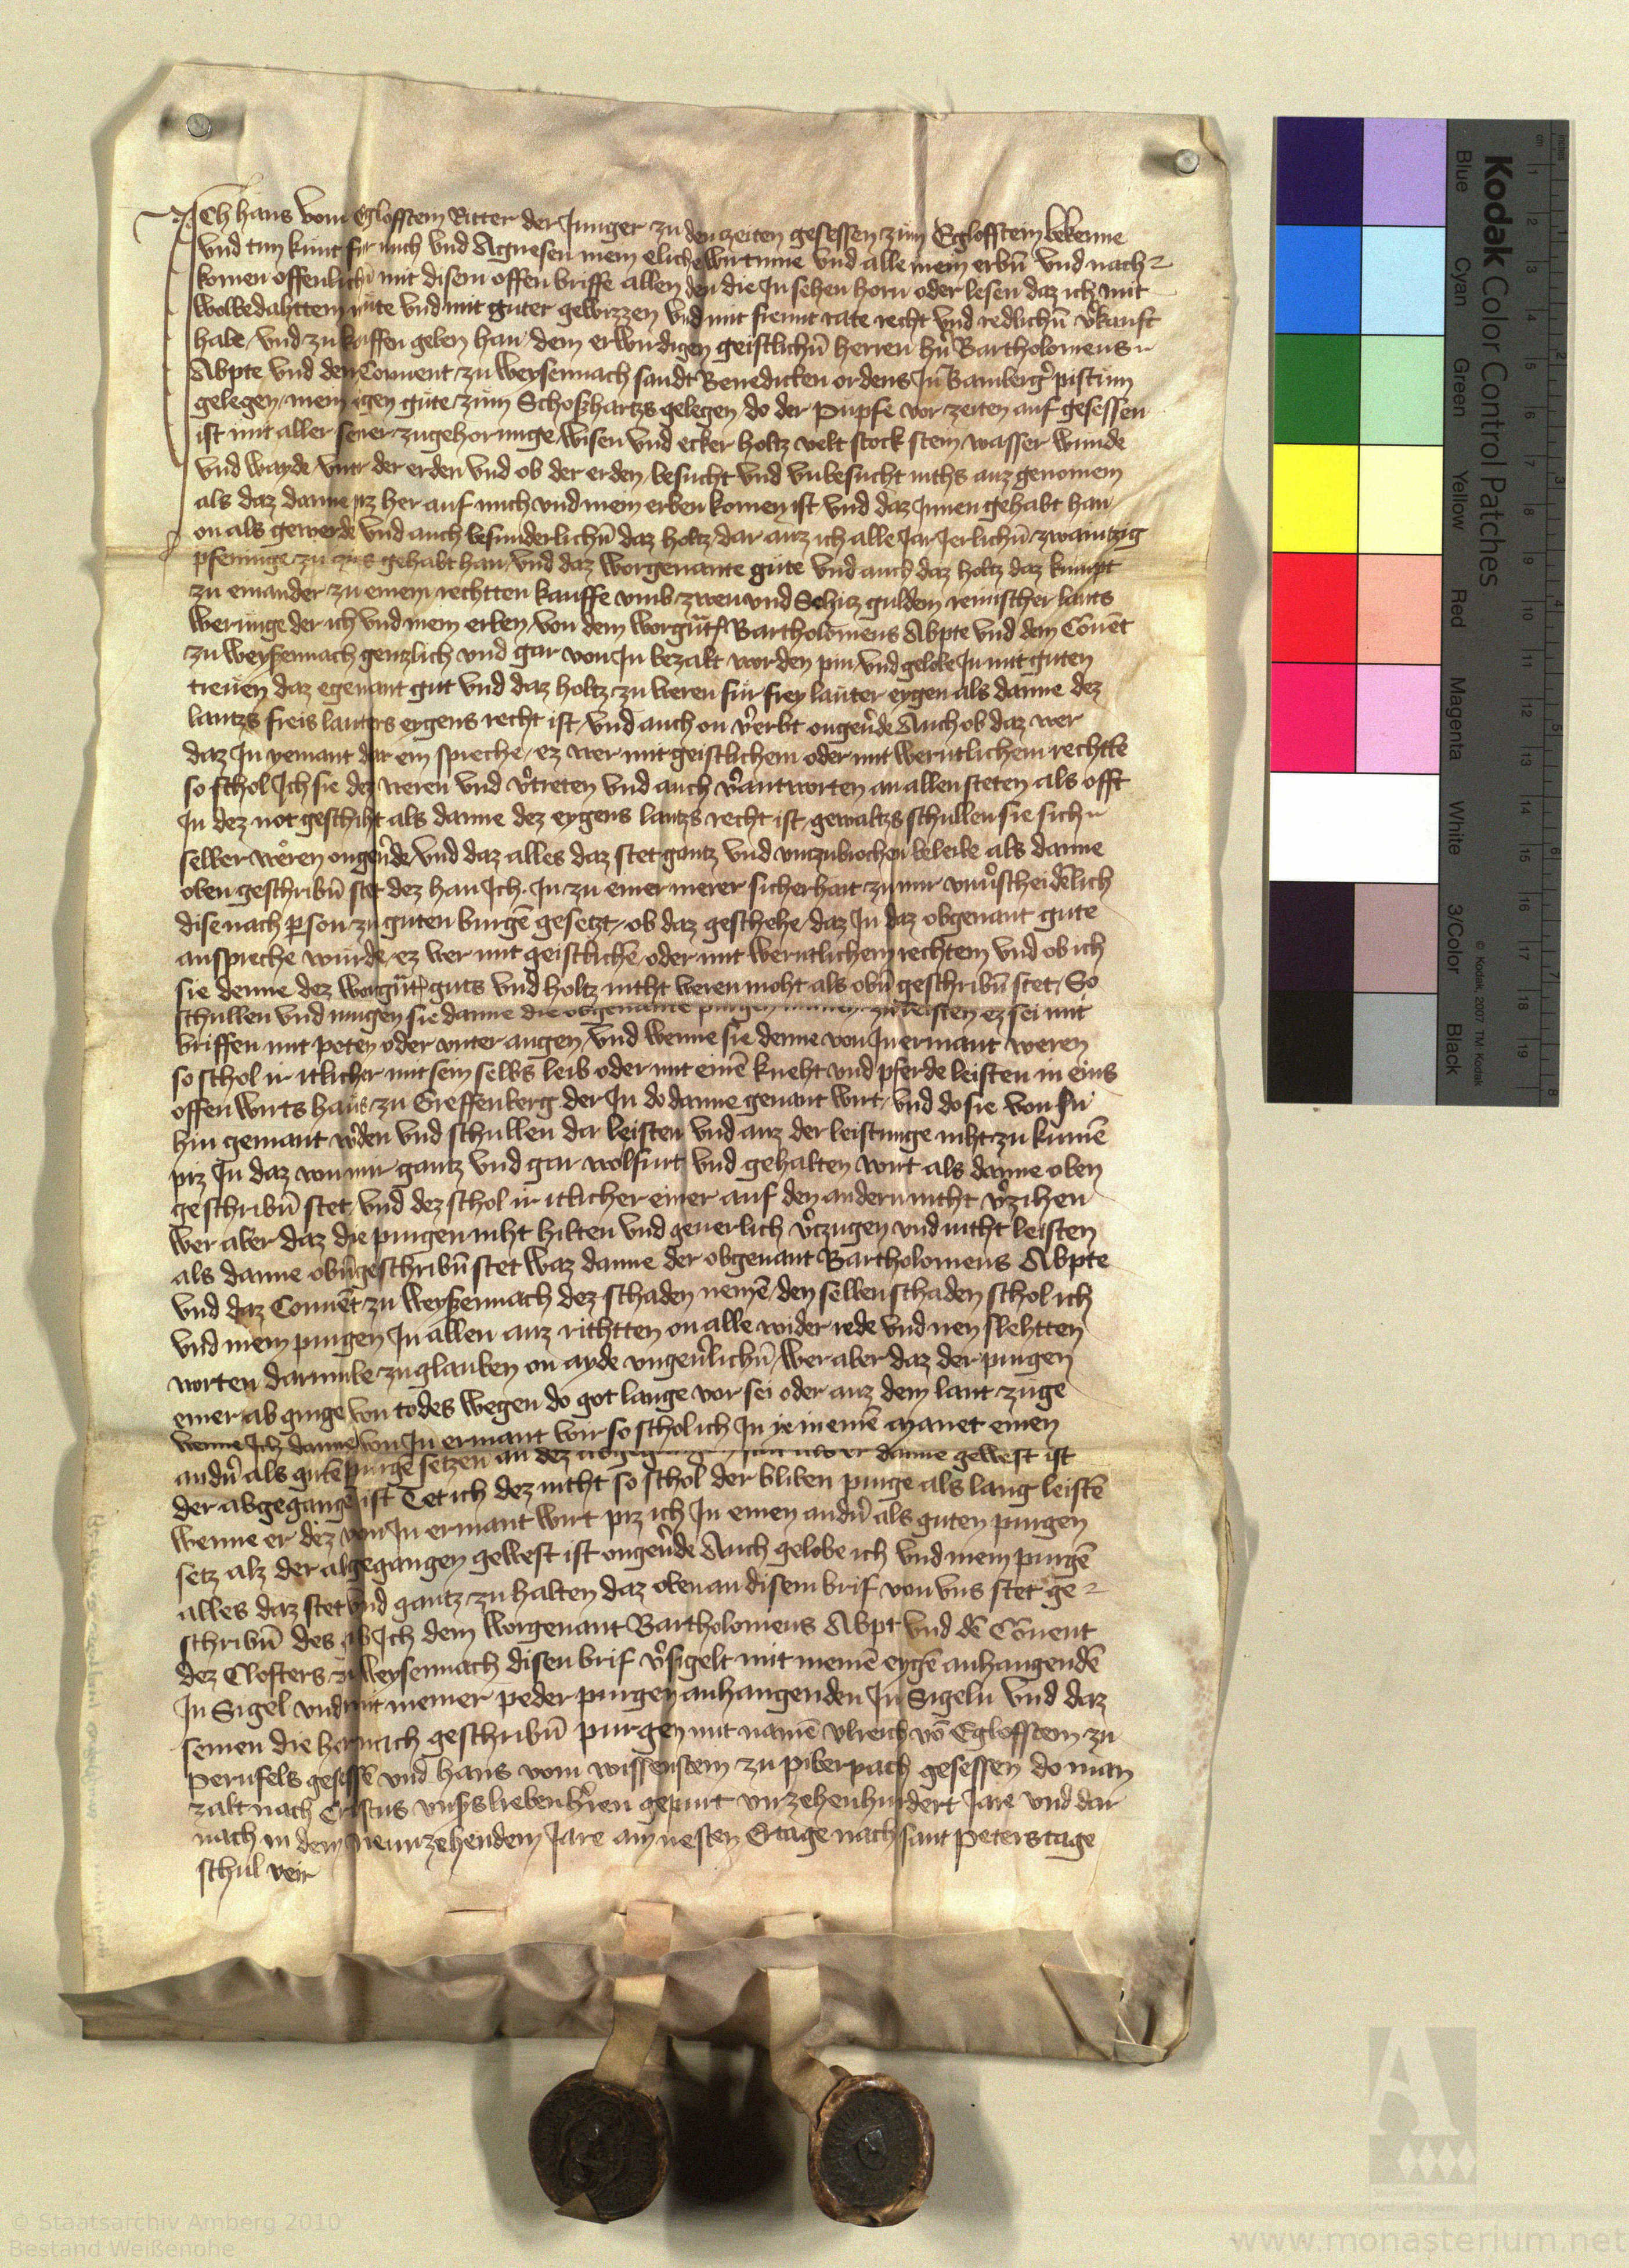 Ich hans vom Egloffstein Ritter der Junger zu den zeiten gesessen zum Egloffstein bekenne
vnd tun kunt fur mich vnd Agnesen mein eliche wirtinne vnd alle mein erbn̄ vnd nach-
komen offenlichn̄ mit disem offen briffe allen den die In sehen horn oder lesen daz ich mit
wolbedahttem mute vnd mit guter gewizzen vnd mit freunt rate recht vnd redlichn̄ v'kauft
habe vnd zu kauffen geben han dem erwirdigen geistlichn̄ herren hn̄ Bartholomeus
Abpte vnd den Conuent zu Weysennach sandt Benedicten ordens In Bamberg' pistum
gelegen mein eigen gute zum Schoßhartzs gelegen do der Pupfe vor zeiten auf gesessen
ist mit aller seiner zugehorunge wisen vnd ecker holtz velt stock stein wasser wunde
vnd wayde vntr der erden vnd ob der erden besucht vnd vnbesucht nichs auz genomen
als daz danne piz her auf mich vnd mein erben komen ist vnd daz Innen gehabt han
on als geuerde vnd auch besunderlichn̄ daz holtz dar auz ich alle Jar Jerlichn̄ zwaintzig
pfenninge zu zins gehabt han vnd daz vorgenante gute vnd auch daz holtz daz kumpt
zu einander zu einem rechtten kauffe vmb zwen vnd Sehtz gulden reinischer lants
werunge der ich vnd mein erben von dem vorgn̄t Bartholomeus Abpte vnd dem Conuēt
zu Weyßennach genzlich vnd gar von In bezalt worden pin vnd gelobe In mit guten
treuen daz egenant gut vnd daz holtz zu weren fur frey lauter eygen als danne dez
lantzs freis lauters eygens recht ist vnd auch on v'erbt ongeu'de Auch ob daz wer
daz In yemant dar ein spreche ez wer mit geistlichem oder mit werntlichem rechtte
so schol Ich sie dez weren vnd v'treten vnd auch v'antworten an allen steten als offt
In dez not geschiht als danne dez eygens lantzs recht ist gewaltzs schullen sie sich
selber weren ongeu'de vnd daz alles daz stet gantz vnd vnzubrochen beleibe als danne
oben geschribn̄ stet dez han Ich In zu einer merer sicherhait zu mir vnuerscheidēlich
dise nach p'son zu guten burgē gesetzt ob daz geschehe daz In daz obgenant gute
anspreche wurde ez wer mit geistlichē oder mit werntlichem rechtem vnd ob ich
sie denne dez vorgn̄t guts vnd holtz nicht weren moht als obn̄ geschribn̄ stet So
schullen vnd mugen sie danne die obgenante purgen manen zu leisten ez sei mit
briffen mit poten oder vnter augen vnd wenne sie denne von In ermant weren
so schol ir itlicher mit sein selbs leib oder mit einē kneht vnd pferde leisten in eins
offen wirts haus zu Greffenberg der In do danne genant wirt vnd do sie von In
hin gemant w'den vnd schullen da leisten vnd auz der leistunge niht zu kumē
piz In daz von mir gantz vnd gar volfurt vnd gehalten wirt als danne oben
geschribn̄ stet vnd dez schol ir itlicher einer auf den andern nicht v'zihen
wer aber daz die purgen niht hilten vnd geuerlich v'zugen vnd nicht leisten
als danne obn̄ geschribn̄ stet waz danne der obgenant Bartholomeus Abpte
vnd daz Conuēt zu Weyßennach dez schaden nemē den selben schaden schol ich
vnd mein purgen In allen auz richtten on alle wider rede vnd iren slehtten
worten darumbe zu glauben on ayde vngeu'lichn̄ wer aber daz der purgen
einer ab ginge von todes wegen do got lange vor sei oder auz dem lant zuge
wenne Ich danne von In ermant wir so schol ich In je in einē manet einen
andn̄ als gute purge setzen an dez danne gewest ist
der abgegangē ist Tet ich dez nicht so schol der bliben purge als lang leistē
wenne er dez von In ermant wirt piz ich In einen andn̄ als guten purgen
setz alz der abgegangen gewest ist ongeu'de Auch gelobe ich vnd mein purgē
alles daz stet vnd gantz zu halten daz oben an disem brif von vns stet ge-
schribn̄ des gib Ich dem vorgenant Bartholomeus Abpt vnd dē Conuent
dez Closters zu Weysennach disen brif v'sigelt mit meinē eygē anhangendē
In Sigel vnd mit meiner peder purgen anhangenden In Sigeln vnd daz
seinen die hernach geschribn̄ purgen mit namē vlreich vō Egloffstein zu
Pernfels gesessē vnd hans vom wissenstein zu piberpach gesessen do man
zalt nach Cristus vns's lieben h'ren gepurt virzehenhundert Jare vnd dar
nach in dem Neunzehendem Jare am nesten Ertage nach sant Peters tage
schul veir
Kodak Color Control Patches
Blue Cyan Green Yellow Red Magenta White 3/Color Black
© Kodak, 2007 TM: Kodak
© Staatsarchiv Amberg 2010
Bestand Weißenohe
www.monasterium.net